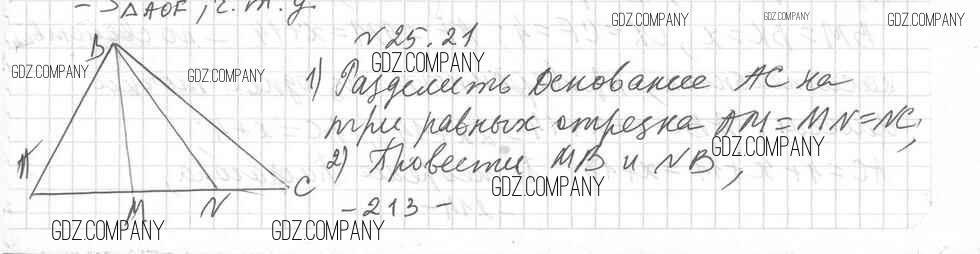 S△AOF, ч.т.д.
GDZ.COMPANY
GDZ.COMPANY
GDZ.COMPANY
N 25.21
GDZ.COMPANY
B
GDZ.COMPANY
GDZ.COMPANY
1) Разделить основание AC на
три равных отрезка AM=MN=NC,
GDZ.COMPANY
2) Провести MB и NB,
A
C
GDZ.COMPANY
M
N
-213-
GDZ.COMPANY
GDZ.COMPANY